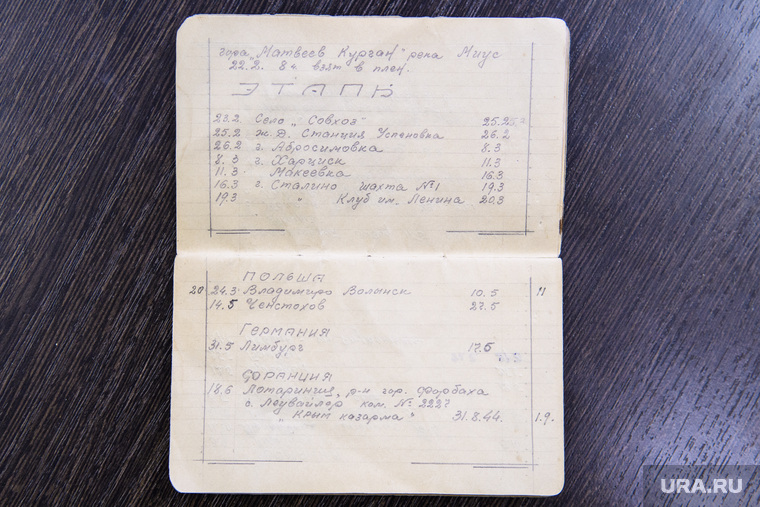 гора „Матвеев Курган" река Миус
22.2. 8ч. взят в плен.
ЭТАПЫ
23.2. Село „Совхоз" 25.2
25.2 ж.д. Станция Успеновка 26.2
26.2 г. Абросимовка 8.3
8.3 г. Харциск 11.3
11.3 Макеевка 16.3
16.3 г. Сталино шахта №1 19.3
19.3 " Клуб им. Ленина 20.3
ПОЛЬША
20 24.3. Владимиро Волинск 10.5 11
14.5 Ченстохов 27.5
ГЕРМАНИЯ
31.5 Лимбург 17.6
ФРАНЦИЯ
18.6 Лотарингия, р-н гор. Форбаха
с. Лоувайлер ком. № 222?
„Крым казарма" 31.8.44. 1.9.
URA.RU